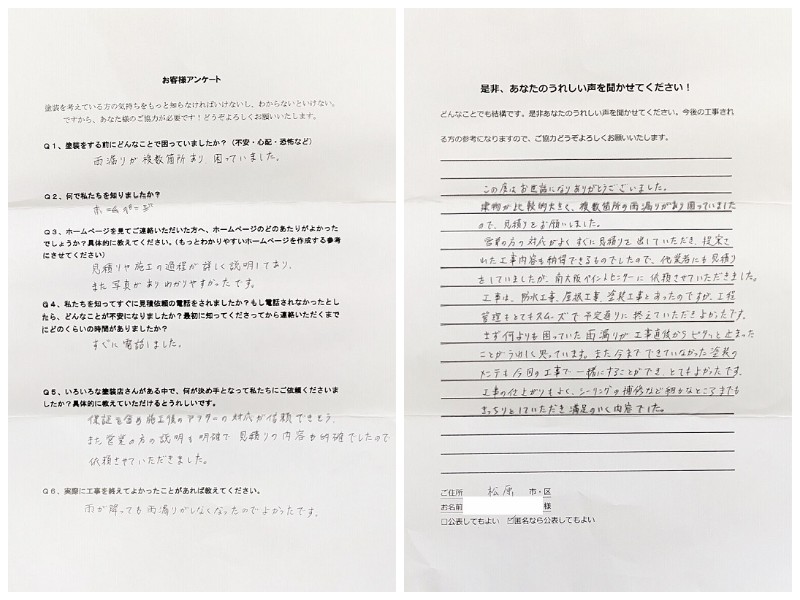 お客様アンケート
塗装を考えている方の気持ちをもっと知らなければいけないし、わからないといけない。
ですから、あなた様のご協力が必要です！どうぞよろしくお願いいたします。
Q１、塗装をする前にどんなことで困っていましたか？（不安・心配・恐怖など）
雨漏りが複数箇所あり困っていました。
Q２、何で私たちを知りましたか？
ホームページ
Q３、ホームページを見てご連絡いただいた方へ、ホームページのどのあたりがよかった
でしょうか？具体的に教えてください。（もっとわかりやすいホームページを作成する参考
にさせてください）
見積りや施工の過程が詳しく説明してあり、
また写真がありわかりやすかったです。
Q４、私たちを知ってすぐに見積依頼の電話をされましたか？もし電話されなかったとし
たら、どんなことが不安になりましたか？最初に知ってくださってから連絡いただくまで
にどのくらいの時間がありましたか？
すぐに電話しました。
Q５、いろいろな塗装店さんがある中で、何が決め手となって私たちにご依頼くださいま
したか？具体的に教えていただけるとうれしいです。
保証も含め施工後のアフターの対応が信頼できそう、
また営業の方の説明も明確で見積りの内容も明確でしたので
依頼させていただきました。
Q６、実際に工事を終えてよかったことがあれば教えてください。
雨が降っても雨漏りがしなくなったのでよかったです。
是非、あなたのうれしい声を聞かせてください！
どんなことでも結構です。是非あなたのうれしい声を聞かせてください。今後の工事され
る方の参考になりますので、ご協力どうぞよろしくお願いいたします。
この度はお世話になりありがとうございました。
建物が比較的大きく、複数箇所の雨漏りがあり困っていました
ので、見積りをお願いしました。
営業の方の対応がよくすぐに見積りを出していただき、提案さ
れた工事内容も納得できるものでしたので、他業者にも見積り
をしていましたが、南大阪ペイントセンターに依頼させていただきました。
工事は、防水工事、屋根工事、塗装工事とあったのですが、工程
管理もとてもスムーズで予定通りに終えていただきよかったです。
まず何よりも困っていた雨漏りが工事直後からピタッと止まった
ことがうれしく思っています。また今までできていなかった塗装の
メンテも今回の工事で一緒にすることができ、とてもよかったです。
工事の仕上がりもよく、シーリングの補修など細かなところまでも
きっちりとしていただき満足のいく内容でした。
ご住所 松原 市・区
お名前 様
□公表してもよい ☑匿名なら公表してもよい